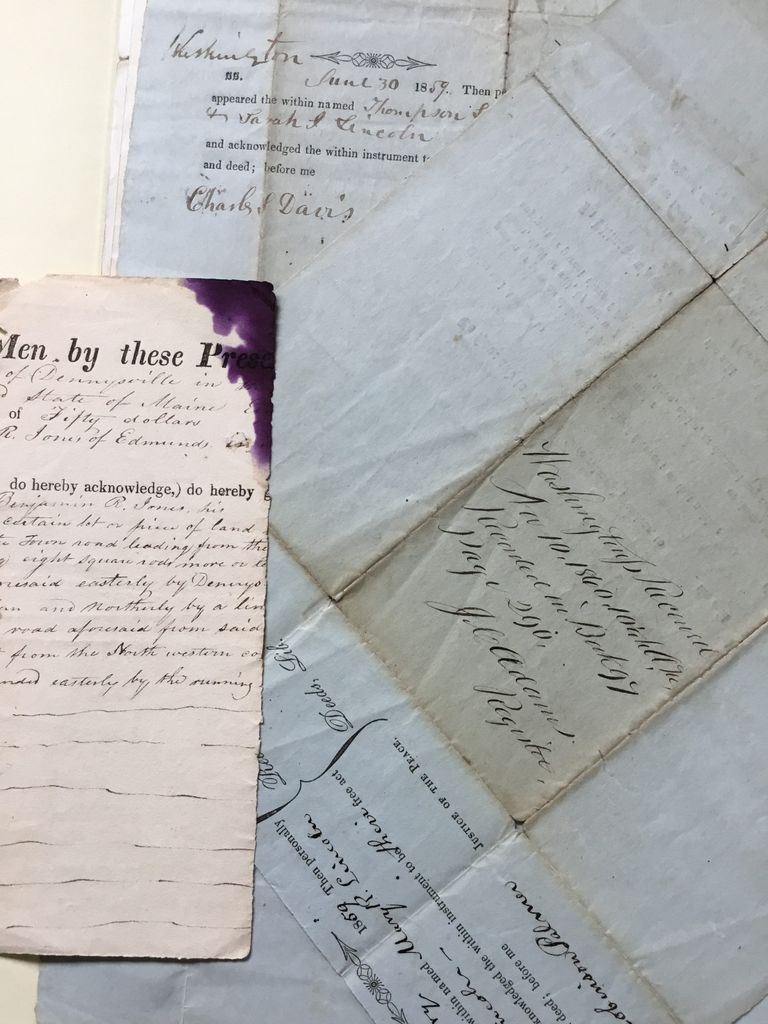 Washington
ss. June 30 1859. Then
appeared the within named Thompson
& Sarah J Lincoln
and acknowledged the within instrument
and deed; before me
Charles S Davis
Men by these Prese
of Dennysville in
State of Maine
of Fifty dollars
R. Jones of Edmunds in
do hereby acknowledge,) do hereby
Benjamin R. Jones, his
certain lot or piece of land
Town road leading from the
eight square rods more or
easterly by Dennys
and Northerly by a lin
road aforesaid from said
from the North western co
easterly by the running
Washington, ss Received
1860
Recorded in Book 97
page 290.
J. C. Adams,
Register.
Deeds, Lib.
JUSTICE OF THE PEACE.
1859 Then personally
within named Mary R. Lincoln
knowledged the within instrument to be their free act
deed; before me
Robinson Palmer